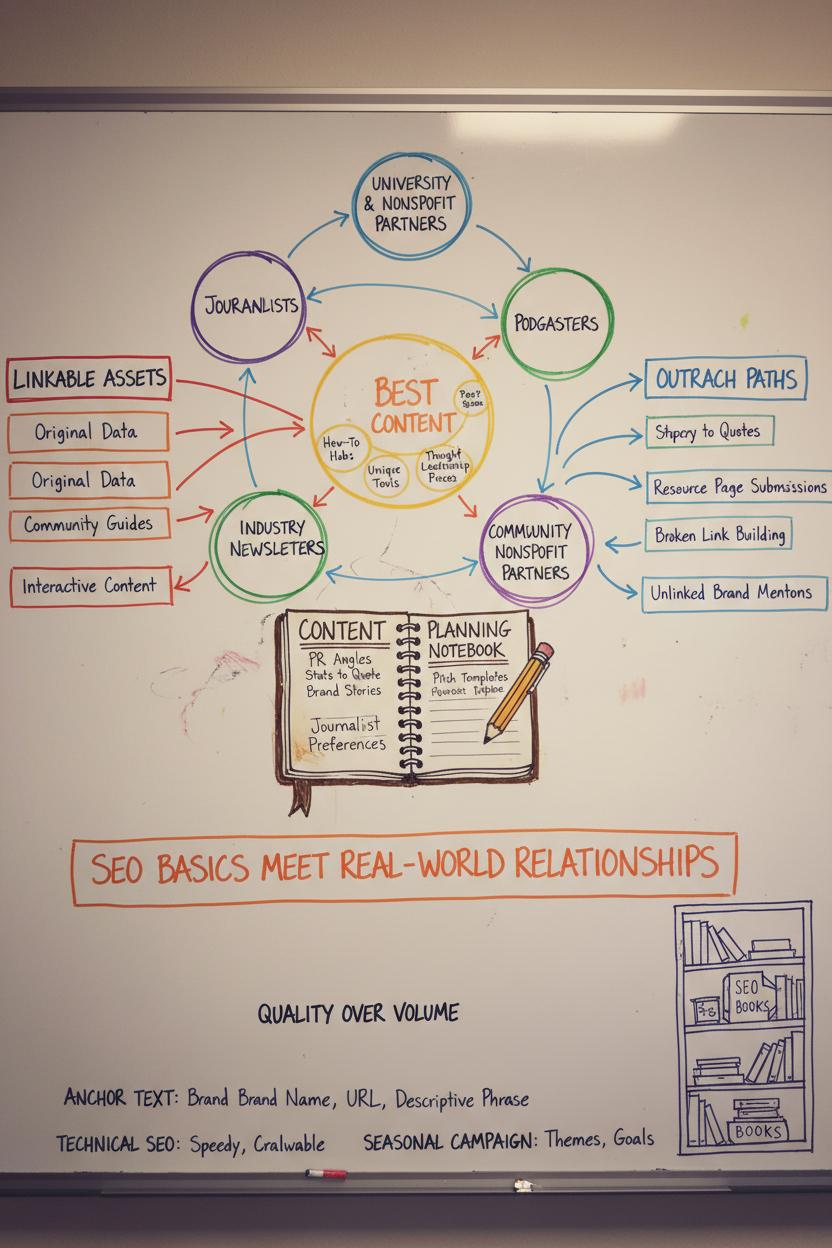 UNIVERSITY
& NONSPOFIT
PARTNERS
JOURANLISTS
PODGASTERS
LINKABLE ASSETS
Original Data
Original Data
Community Guides
Interactive Content
BEST
CONTENT
How-To
Unique
Thought
OUTRACH PATHS
to Quotes
Resource Page Submissions
Broken Link Building
Unlinked Brand Mentons
INDUSTRY
NEWSLETERS
COMMUNITY
NONSPOFIT
PARTNERS
CONTENT
PR Angles
Stats to Quote
Brand Stories
Journalist
Preferences
PLANNING
NOTEBOOK
Pitch Templates
SEO BASICS MEET REAL-WORLD RELATIONSHIPS
SEO
BOOKS
BOOKS
QUALITY OVER VOLUME
ANCHOR TEXT: Brand Brand Name, URL, Descriptive Phrase
TECHNICAL SEO: Speedy, Cralwable
SEASONAL CAMPAIGN: Themes, Goals